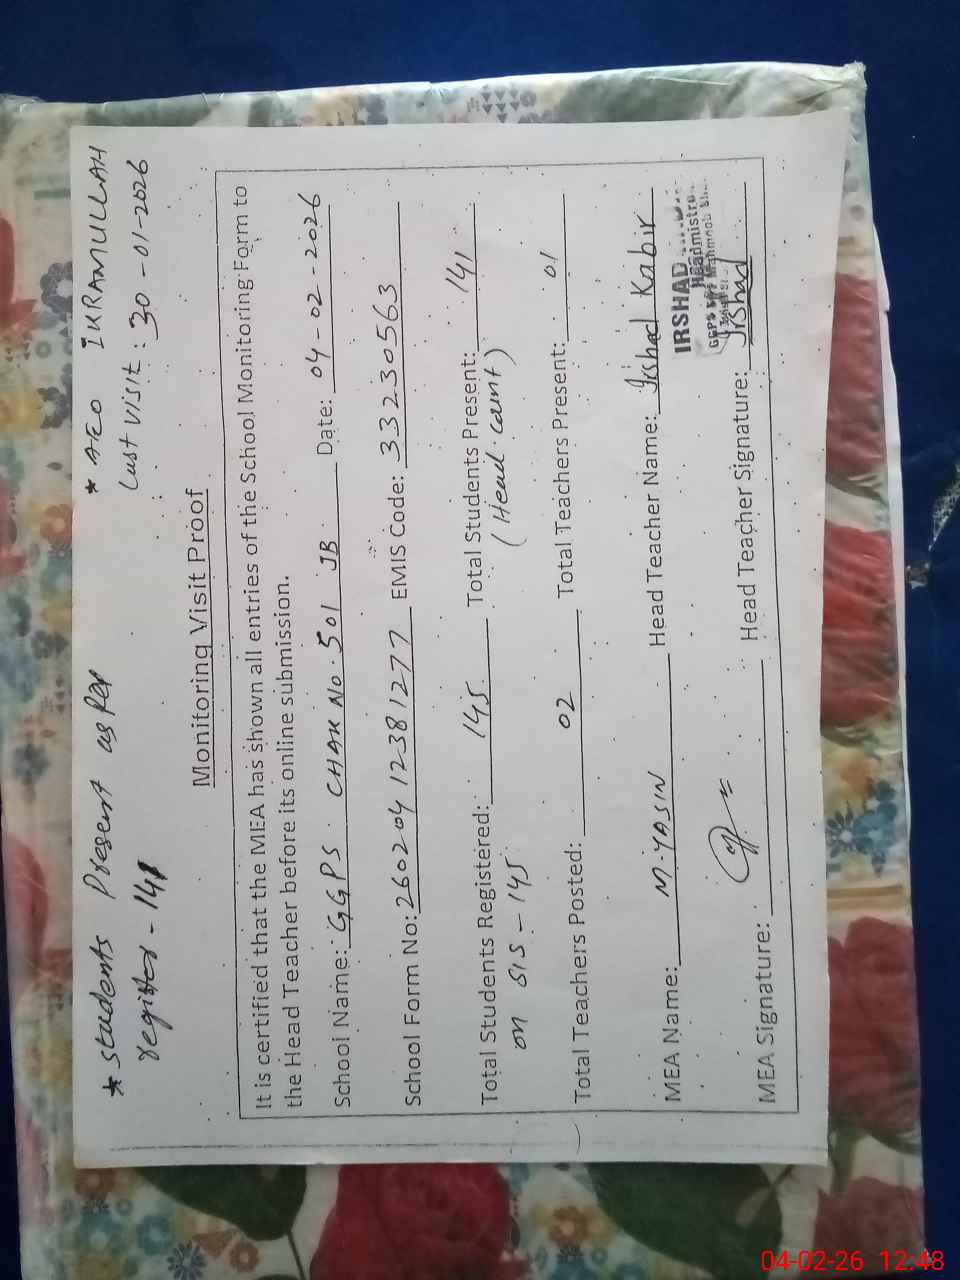 * Students Present as per
register - 141
* AEO IKRAMULLAH
Last Visit : 30-01-2026
Monitoring Visit Proof
It is certified that the MEA has shown all entries of the School Monitoring Form to
the Head Teacher before its online submission.
School Name: GGPS CHAK No. 501 JB Date: 04-02-2026
School Form No: 26020412381277 EMIS Code: 33230563
Total Students Registered: 145 Total Students Present: 141
on SIS - 145 (Head count)
Total Teachers Posted: 02 Total Teachers Present: 01
MEA Name: M. YASIN Head Teacher Name: Irshad Kabir
IRSHAD
Headmistre
GGPS
MEA Signature: Head Teacher Signature: Irshad
04-02-26 12:48